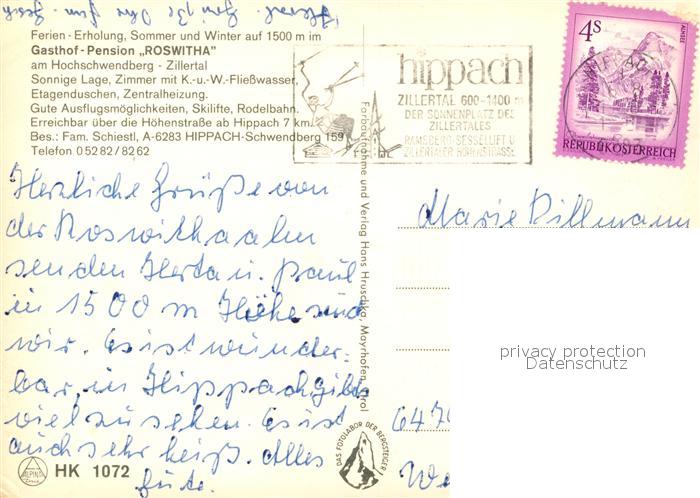 Ferien-Erholung, Sommer und Winter auf 1500 m im
Gasthof-Pension „ROSWITHA"
am Hochschwendberg - Zillertal
Sonnige Lage, Zimmer mit K.-u.-W.-Fließwasser,
Etagenduschen, Zentralheizung.
Gute Ausflugsmöglichkeiten, Skilifte, Rodelbahn.
Erreichbar über die Höhenstraße ab Hippach 7 km.
Bes.: Fam. Schiestl, A-6283 HIPPACH-Schwendberg 159
Telefon 0 52 82 / 82 62
hippach
ZILLERTAL 600-1400 m
DER SONNENPLATZ DES
ZILLERTALES
RAMSBERG-SESSELLIFT U.
ZILLERTALER HÖHENSTRASSE
4S
REPUBLIK ÖSTERREICH
Herzliche Grüße von
der Roswithaalm
senden Herta u. Paul
in 1500 m Höhe sind
wir. Es ist wunder-
bar, in Hippach gibts
viel zu sehen. Es ist
auch sehr heiß. Alles
Gute.
Marie Dillmann
647
We
Farbaufnahme und Verlag Hans Hruschka, Mayrhofen, Tirol
DAS FOTOLABOR DER BERGSTEIGER
ALPIN
HK 1072
privacy protection
Datenschutz